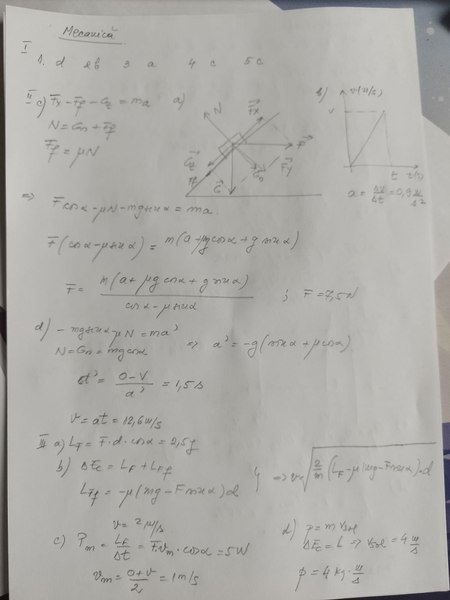 Mecanică
I
1. d 2b 3 a 4 c 5 c
II c) Fx - Ff - Gt = ma a)
N = Gn + Fy
Ff = μN
N Fx F Fy Gt Ff Gn G
b) v(m/s)
v
t t(s)
a = Δv/Δt = 0,9 m/s²
=> F cos α - μN - mg sin α = ma
F(cos α - μ sin α) = m(a + μg cos α + g sin α)
F = m(a + μg cos α + g sin α) / cos α - μ sin α ; F = 7,5 N
d) - mg sin α - μN = ma'
N = Gn = mg cos α => a' = -g(sin α + μ cos α)
= 0 - v / a' = 1,5 s
v = at = 12,6 m/s
III a) LF = F · d · cos α = 2,5 J
b) ΔEc = LF + LFf => v = √ 2/m (LF - μ(mg - F sin α)·d
LFf = -μ(mg - F sin α)d
v = 2 m/s
c) Pm = LF/Δt = F·vm · cos α = 5 W
vm = 0+v/2 = 1 m/s
d) p = m vsol
ΔEc = L => vsol = 4 m/s
p = 4 kg · m/s